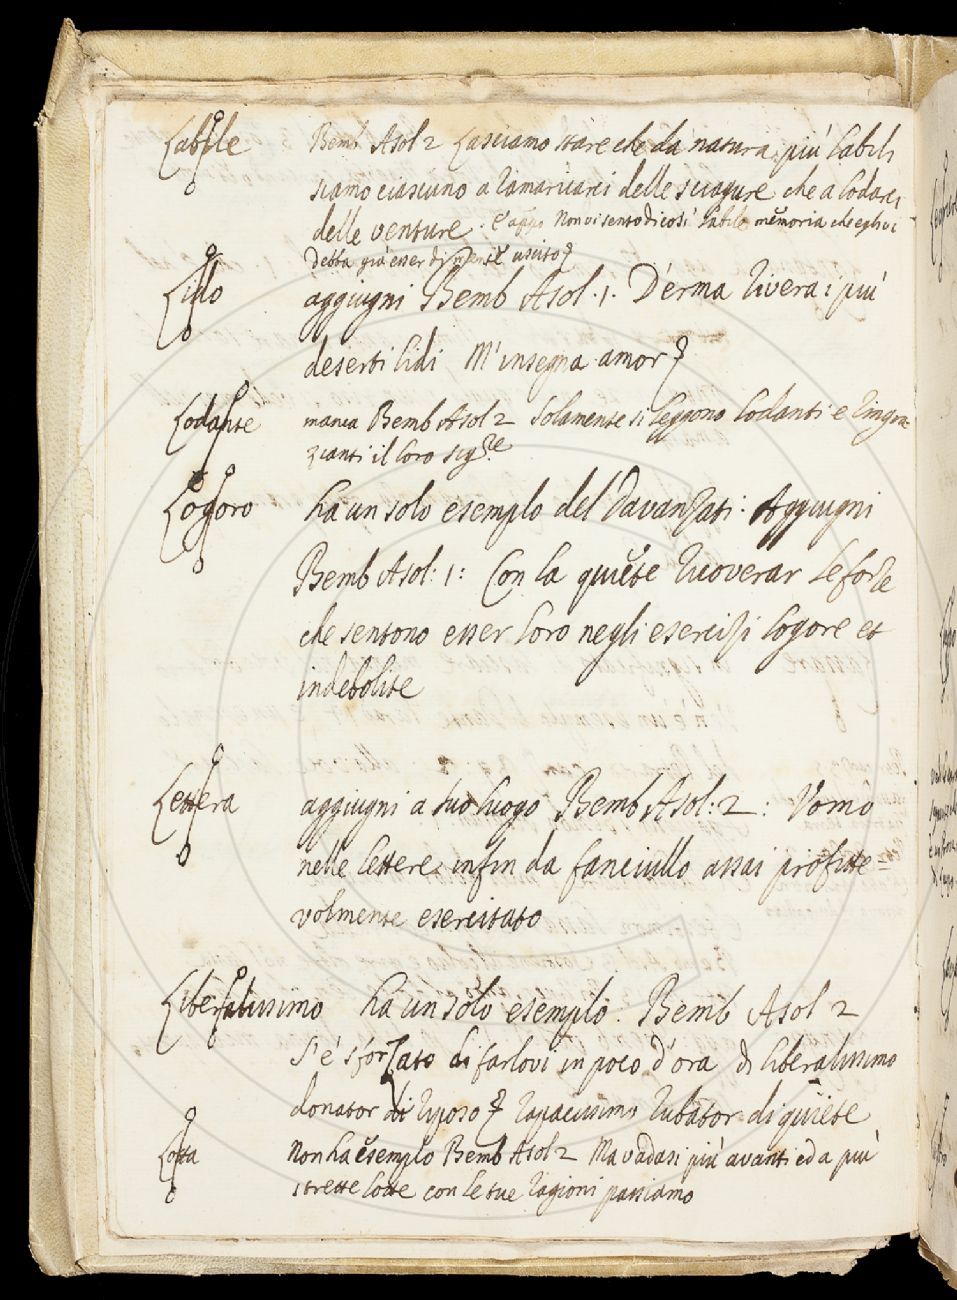 Labile Bemb Asol 2 Lasciamo stare che da natura più labili
siamo ciascuno a ramaricarci delle sciagure che a lodarci
delle venture. E appo Non vi sento di così labile memoria che egli vi
debba già esser di mente uscito
Lido aggiugni Bemb Asol. 1. D'erma rivera i più
deserti lidi M'insegna amor
Lodante manca Bemb Asol 2 Solamente si leggono lodanti e ringra-
zianti il loro sig.re
Logoro ha un solo esempio del Davanzati: Aggiugni
Bemb Asol: 1: Con la quiete ricoverar le forze
che sentono esser loro negli esercizi logore et
indebolite
Lettera aggiugni a suo luogo Bemb Asol: 2: Uomo
nelle lettere infin da fanciullo assai profitte-
volmente esercitato
Liberalissimo ha un solo esempio. Bemb Asol 2
S'è sforzato di farlovi in poco d'ora di liberalissimo
donator di riposo rapacissimo rubator di quiete
Lotta Non ha esempio Bemb Asol 2 Ma vadasi più avanti ed a più
strette lotte con le tue ragioni passiamo